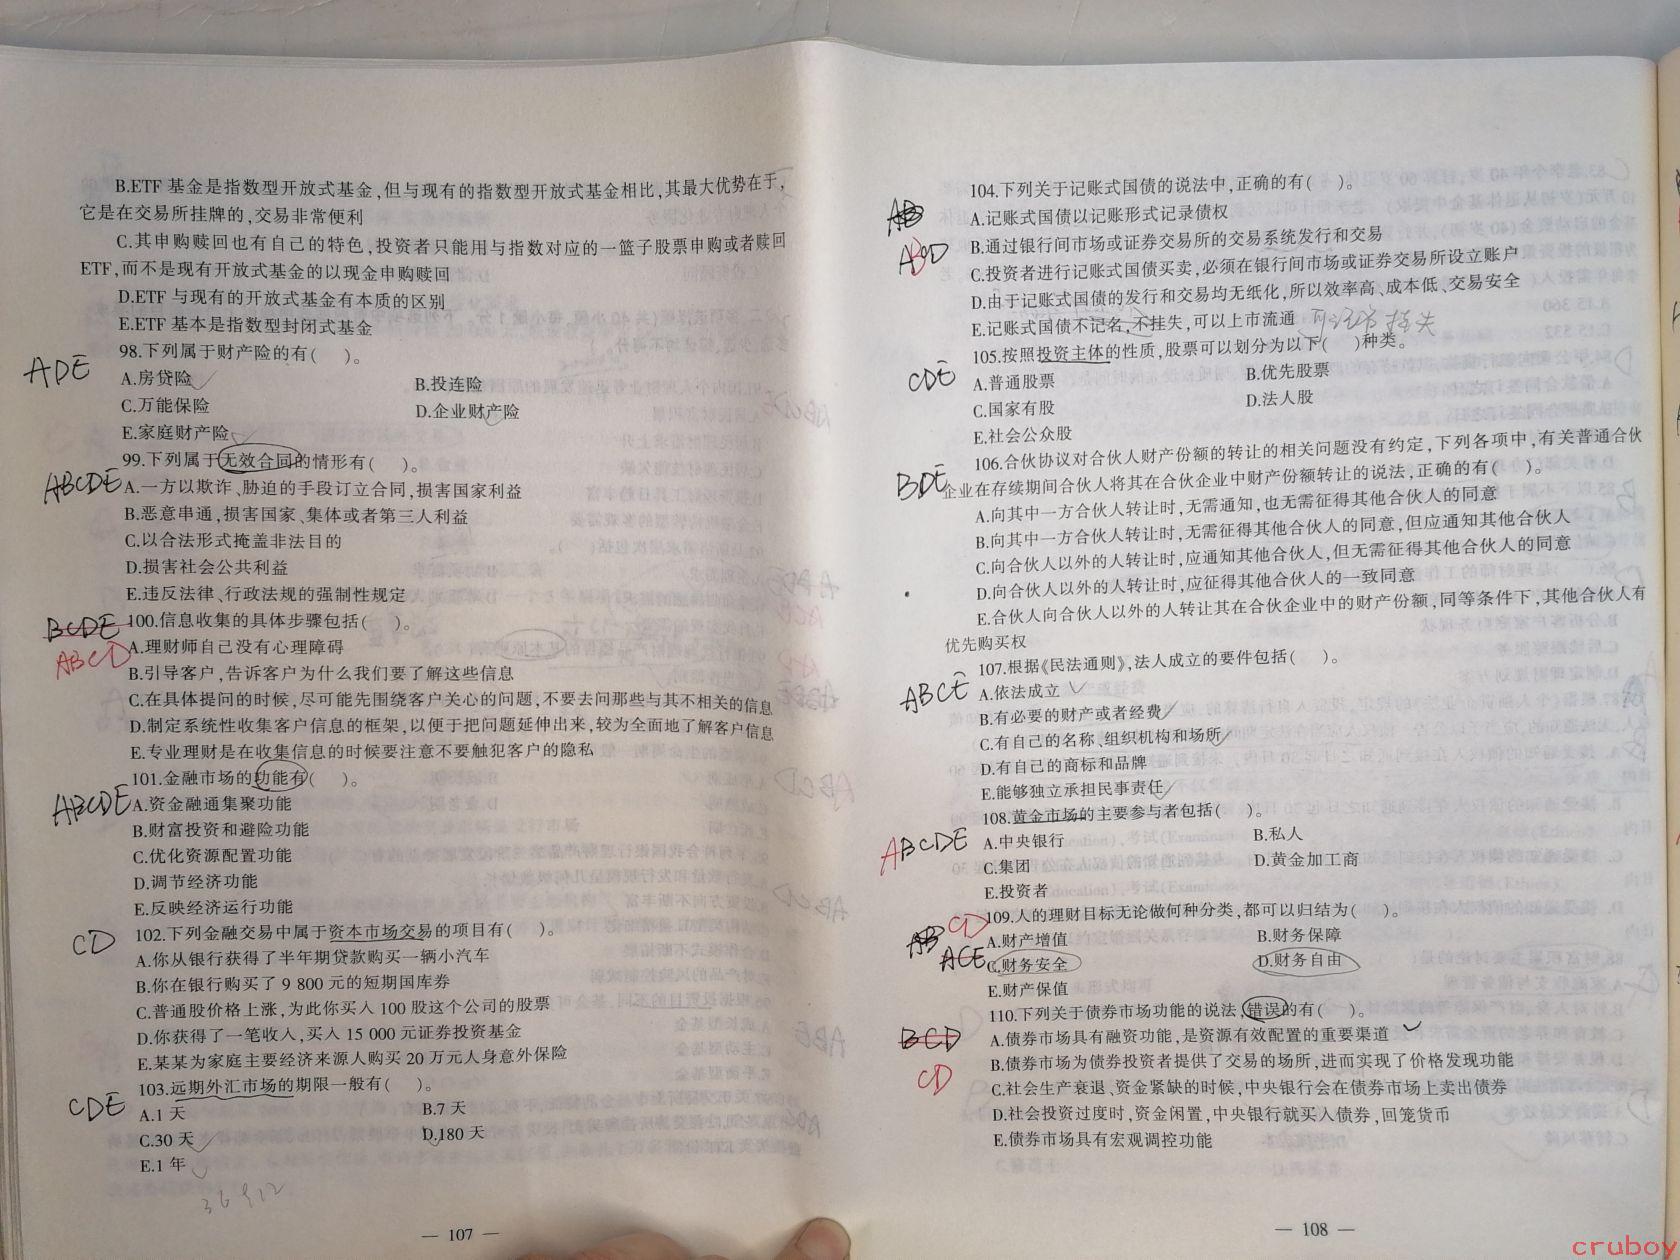 B.ETF 基金是指数型开放式基金,但与现有的指数型开放式基金相比,其最大优势在于,
它是在交易所挂牌的,交易非常便利
C.其申购赎回也有自己的特色,投资者只能用与指数对应的一篮子股票申购或者赎回
ETF,而不是现有开放式基金的以现金申购赎回
D.ETF 与现有的开放式基金有本质的区别
E.ETF 基本是指数型封闭式基金
ADE
98.下列属于财产险的有( )。
A.房贷险 B.投连险
C.万能保险 D.企业财产险
E.家庭财产险
99.下列属于无效合同的情形有( )。
ABCDE
A.一方以欺诈、胁迫的手段订立合同,损害国家利益
B.恶意串通,损害国家、集体或者第三人利益
C.以合法形式掩盖非法目的
D.损害社会公共利益
E.违反法律、行政法规的强制性规定
BCDE
100.信息收集的具体步骤包括( )。
ABCD
A.理财师自己没有心理障碍
B.引导客户,告诉客户为什么我们要了解这些信息
C.在具体提问的时候,尽可能先围绕客户关心的问题,不要去问那些与其不相关的信息
D.制定系统性收集客户信息的框架,以便于把问题延伸出来,较为全面地了解客户信息
E.专业理财是在收集信息的时候要注意不要触犯客户的隐私
101.金融市场的功能有( )。
ABCDE
A.资金融通集聚功能
B.财富投资和避险功能
C.优化资源配置功能
D.调节经济功能
E.反映经济运行功能
CD
102.下列金融交易中属于资本市场交易的项目有( )。
A.你从银行获得了半年期贷款购买一辆小汽车
B.你在银行购买了 9 800 元的短期国库券
C.普通股价格上涨,为此你买入 100 股这个公司的股票
D.你获得了一笔收入,买入 15 000 元证券投资基金
E.某某为家庭主要经济来源人购买 20 万元人身意外保险
103.远期外汇市场的期限一般有( )。
CDE
A.1 天 B.7 天
C.30 天 D.180 天
E.1 年
— 107 —
104.下列关于记账式国债的说法中,正确的有( )。
AB
A.记账式国债以记账形式记录债权
ABCD
B.通过银行间市场或证券交易所的交易系统发行和交易
C.投资者进行记账式国债买卖,必须在银行间市场或证券交易所设立账户
D.由于记账式国债的发行和交易均无纸化,所以效率高、成本低、交易安全
E.记账式国债不记名,不挂失,可以上市流通
105.按照投资主体的性质,股票可以划分为以下( )种类。
CDE
A.普通股票 B.优先股票
C.国家有股 D.法人股
E.社会公众股
106.合伙协议对合伙人财产份额的转让的相关问题没有约定,下列各项中,有关普通合伙
BDE
企业在存续期间合伙人将其在合伙企业中财产份额转让的说法,正确的有( )。
A.向其中一方合伙人转让时,无需通知,也无需征得其他合伙人的同意
B.向其中一方合伙人转让时,无需征得其他合伙人的同意,但应通知其他合伙人
C.向合伙人以外的人转让时,应通知其他合伙人,但无需征得其他合伙人的同意
D.向合伙人以外的人转让时,应征得其他合伙人的一致同意
E.合伙人向合伙人以外的人转让其在合伙企业中的财产份额,同等条件下,其他合伙人有
优先购买权
107.根据《民法通则》,法人成立的要件包括( )。
ABCE
A.依法成立
B.有必要的财产或者经费
C.有自己的名称、组织机构和场所
D.有自己的商标和品牌
E.能够独立承担民事责任
108.黄金市场的主要参与者包括( )。
ABCDE
A.中央银行 B.私人
C.集团 D.黄金加工商
E.投资者
CD
109.人的理财目标无论做何种分类,都可以归结为( )。
AB
A.财产增值 B.财务保障
ACE
C.财务安全 D.财务自由
E.财产保值
110.下列关于债券市场功能的说法,错误的有( )。
BCD
A.债券市场具有融资功能,是资源有效配置的重要渠道
B.债券市场为债券投资者提供了交易的场所,进而实现了价格发现功能
CD
C.社会生产衰退、资金紧缺的时候,中央银行会在债券市场上卖出债券
D.社会投资过度时,资金闲置,中央银行就买入债券,回笼货币
E.债券市场具有宏观调控功能
— 108 —
cruboy